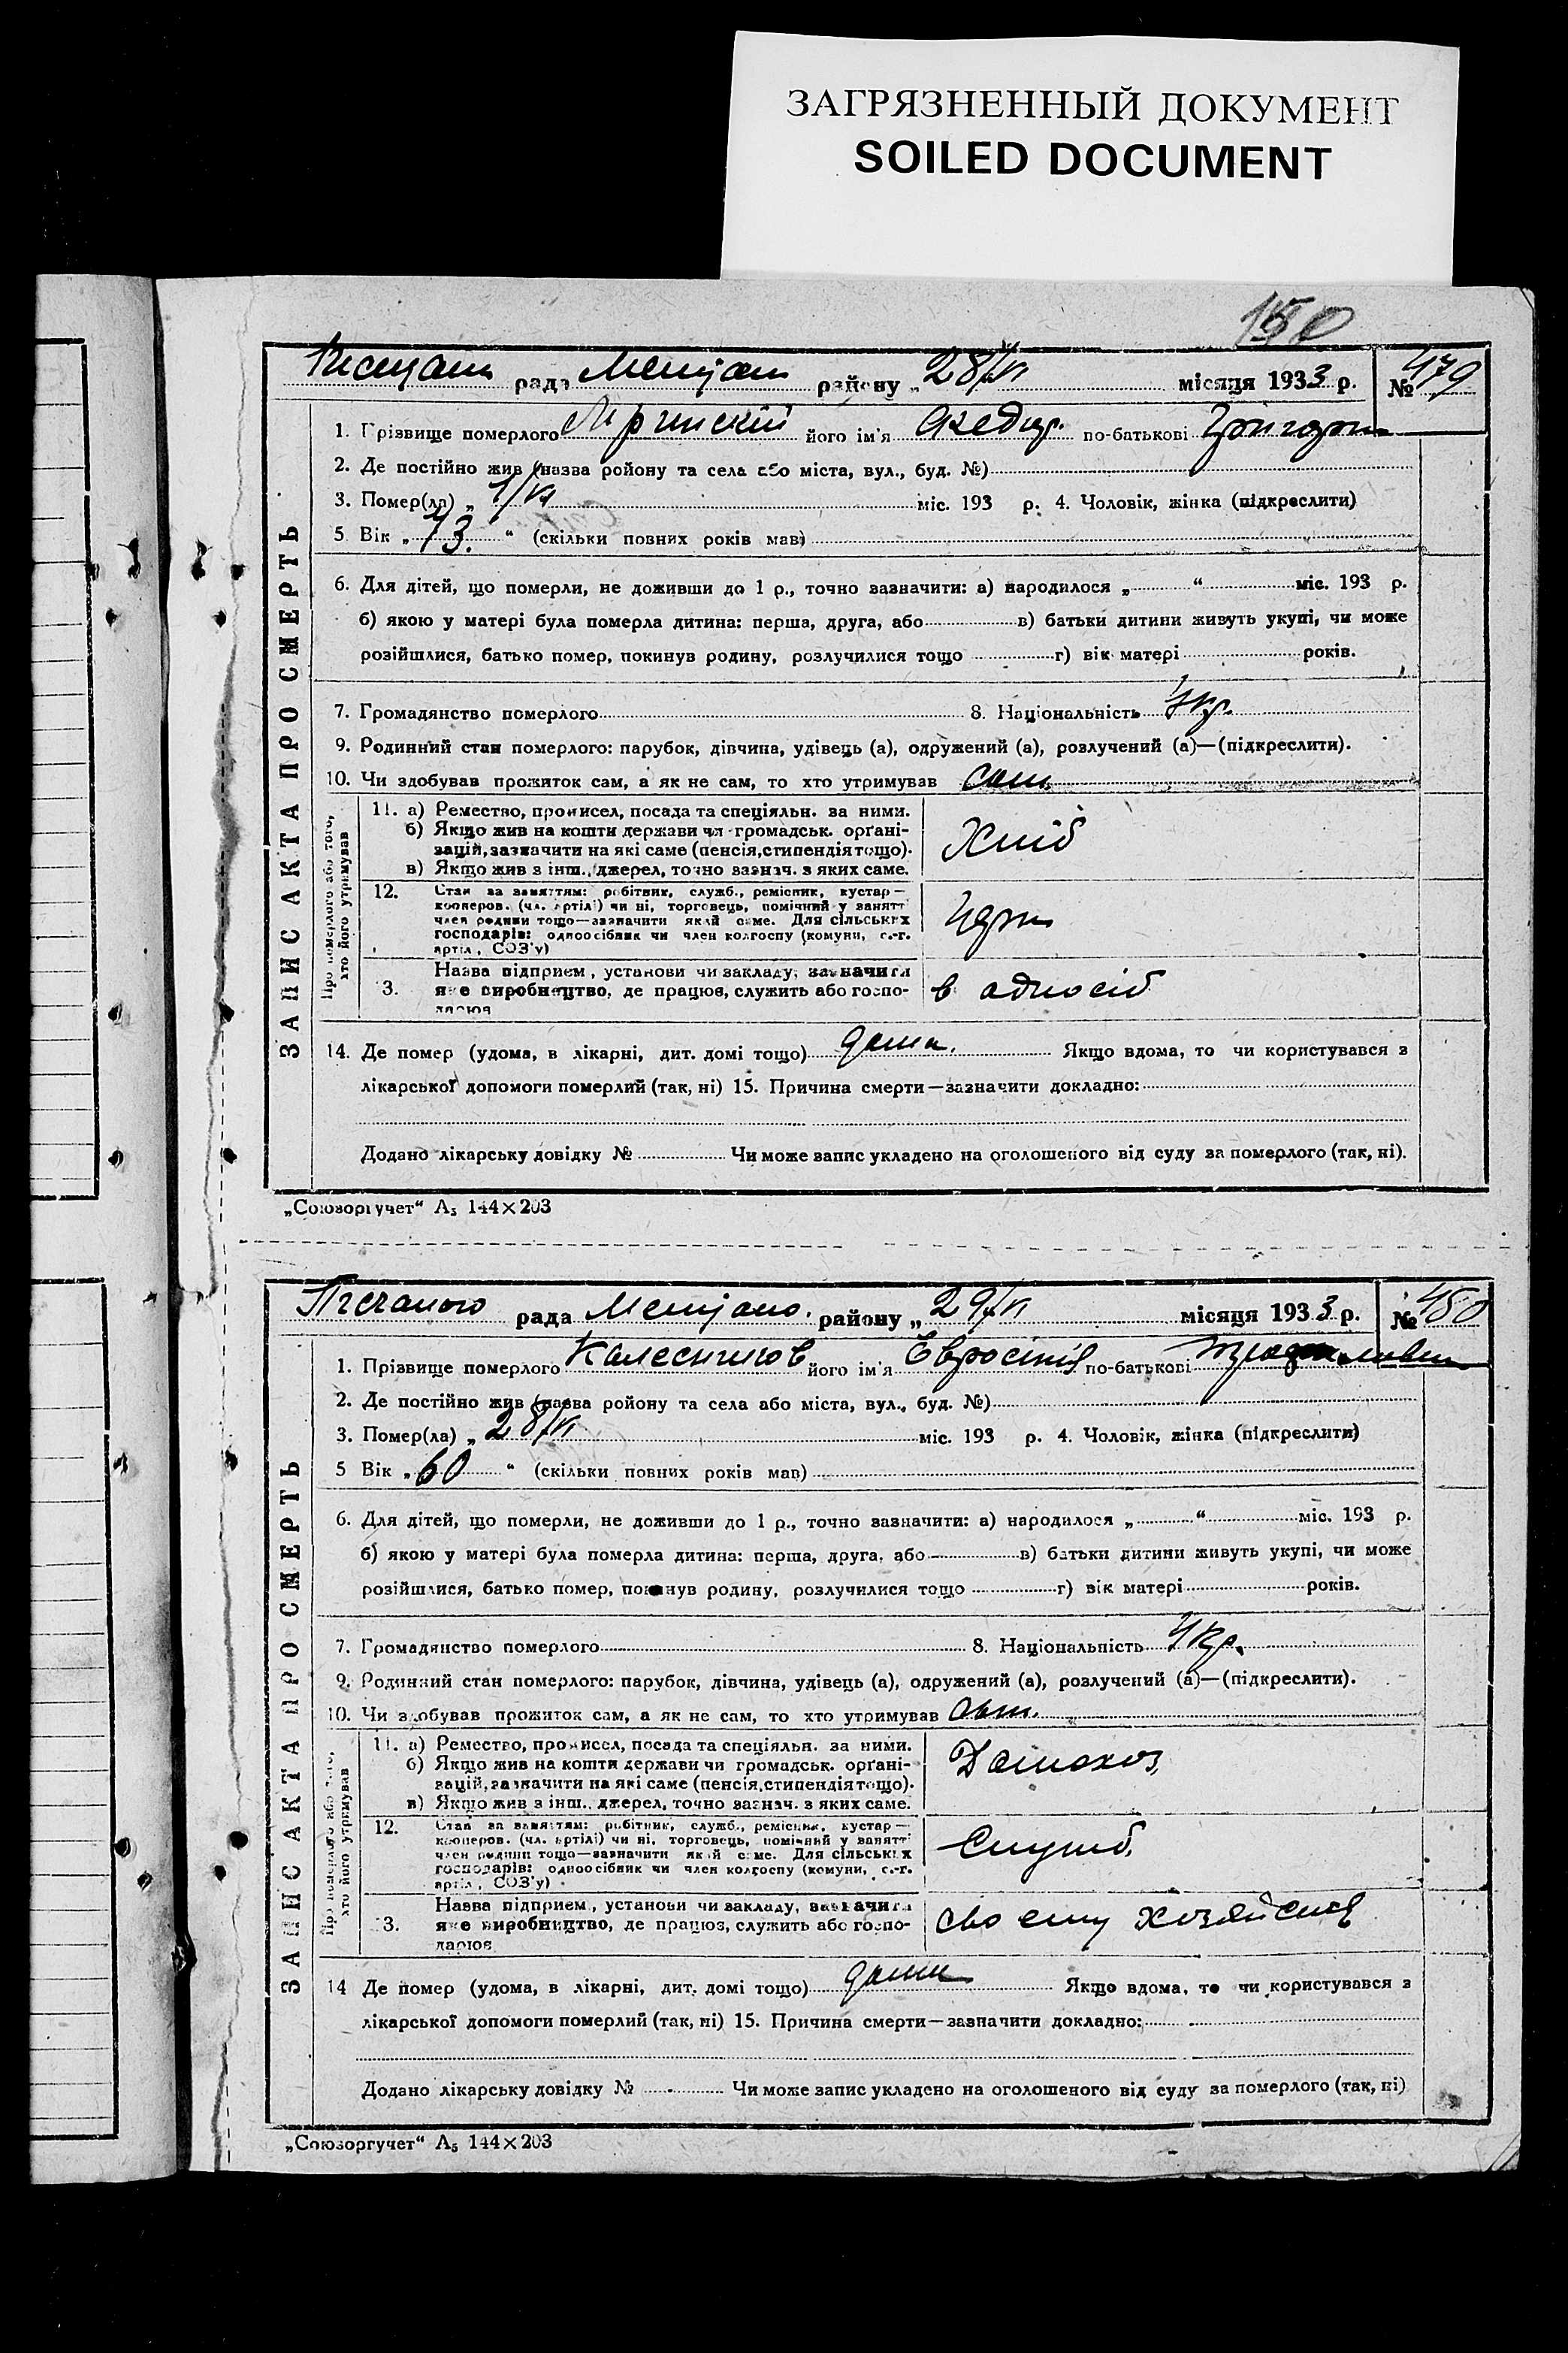 ЗАГРЯЗНЕННЫЙ ДОКУМЕНТ
SOILED DOCUMENT
рада районy „ 28/ місяця 1933 р. № 479
1. Прізвище померлого його ім'я по-батькові
2. Де постійно жив (назва ройону та села або міста, вул., буд. №)
3. Помер(ла) „ міс. 193 р. 4. Чоловік, жінка (підкреслити)
5 Вік „ 73. “ (скільки повних років мав)
6. Для дітей, що померли, не доживши до 1 р., точно зазначити: а) народилося „ “ міс. 193 р.
б) якою у матері була померла дитина: перша, друга, або в) батьки дитини живуть укупі, чи може
розійшлися, батько помер, покинув родину, розлучилися тощо г) вік матері років.
7. Громадянство померлого 8. Національність Укр.
9. Родинний стан померлого: парубок, дівчина, удівець (а), одружений (а), розлучений (а)—(підкреслити).
10. Чи здобував прожиток сам, а як не сам, то хто утримував сам
11. а) Ремество, промисел, посада та спеціяльн. за ними.
б) Якщо жив на кошти держави чи громадськ. орґані-
зацій, зазначити на які саме (пенсія, стипендія тощо).
в) Якщо жив з інш. джерел, точно зазнач. з яких саме.
Хліб
12. Стан за заняттям: робітник, служб., ремісник, кустар—
кооперов. (чл. артілі) чи ні, торговець, помічний у занятт
член родини тощо—зазначити який саме. Для сільських
господарів: одноосібник чи член колгоспу (комуни, с.-г.
артіл, СОЗ'у)
3. Назва підприєм, установи чи закладу, зазначити
яке виробництво, де працюв, служить або госпо-
дарюв
в односіб
14. Де помер (удома, в лікарні, дит. домі тощо) дома. Якщо вдома, то чи користувався з
лікарської допомоги померлий (так, ні) 15. Причина смерти—зазначити докладно:
Додано лікарську довідку № Чи може запис укладено на оголошеного від суду за померлого (так, ні).
ЗАПИС АКТА ПРО СМЕРТЬ
Про померлого або того,
хто його утримував
„Союзоргучет“ А₅ 144×203
рада району „ 29/ місяця 1933 р. № 480
1. Прізвище померлого Калесников його ім'я Євросінія по-батькові
2. Де постійно жив (назва ройону та села або міста, вул., буд. №)
3. Помер(ла) „ 28/ міс. 193 р. 4. Чоловік, жінка (підкреслити)
5 Вік „ 60 “ (скільки повних років мав)
6. Для дітей, що померли, не доживши до 1 р., точно зазначити: а) народилося „ “ міс. 193 р.
б) якою у матері була померла дитина: перша, друга, або в) батьки дитини живуть укупі, чи може
розійшлися, батько помер, покинув родину, розлучилися тощо г) вік матері років.
7. Громадянство померлого 8. Національність Укр.
9. Родинний стан померлого: парубок, дівчина, удівець (а), одружений (а), розлучений (а)—(підкреслити).
10. Чи здобував прожиток сам, а як не сам, то хто утримував
11. а) Ремество, промисел, посада та спеціяльн. за ними.
б) Якщо жив на кошти держави чи громадськ. орґані-
зацій, зазначити на які саме (пенсія, стипендія тощо).
в) Якщо жив з інш. джерел, точно зазнач. з яких саме.
Домохоз,
12. Стан за заняттям: робітник, служб., ремісник, кустар—
кооперов. (чл. артілі) чи ні, торговець, помічний у занятт
член родини тощо—зазначити який саме. Для сільських
господарів: одноосібник чи член колгоспу (комуни, с.-г.
артіл, СОЗ'у)
Служб.
3. Назва підприєм, установи чи закладу, зазначити
яке виробництво, де працюв, служить або госпо-
дарюв
14 Де помер (удома, в лікарні, дит. домі тощо) дома Якщо вдома, то чи користувався з
лікарської допомоги померлий (так, ні) 15. Причина смерти—зазначити докладно:
Додано лікарську довідку № Чи може запис укладено на оголошеного від суду за померлого (так, ні)
ЗАПИС АКТА ПРО СМЕРТЬ
Про померлого або того,
хто його утримував
„Союзоргучет“ А₅ 144×203